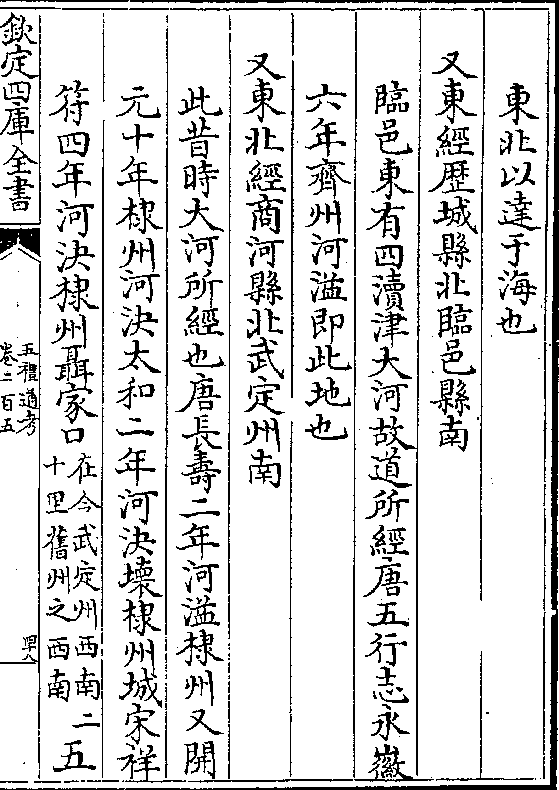 東北以達于海也
又東經歴城縣北臨邑縣南
臨邑東有四瀆津大河故道所經唐五行志永徽
六年齊州河溢即此地也
又東北經商河縣北武定州南
此昔時大河所經也唐長壽二年河溢棣州又開
元十年棣州河決太和二年河決壊棣州城宋祥
符四年河決棣州聶家口在今武定州西南二十里舊州之西南五
欽定四庫全書
五禮通考
卷二百五
四八